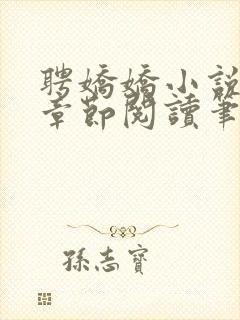 聘嬌嬌小說
章節閱讀筆
孫志寶